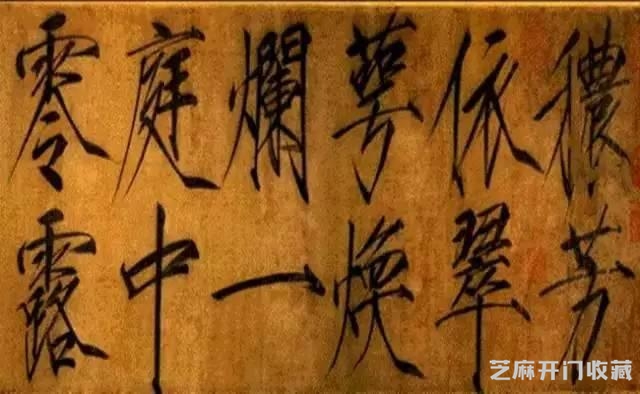 穠芳
依翠
萼煥
爛一
庭中
零露
芝麻开门收藏